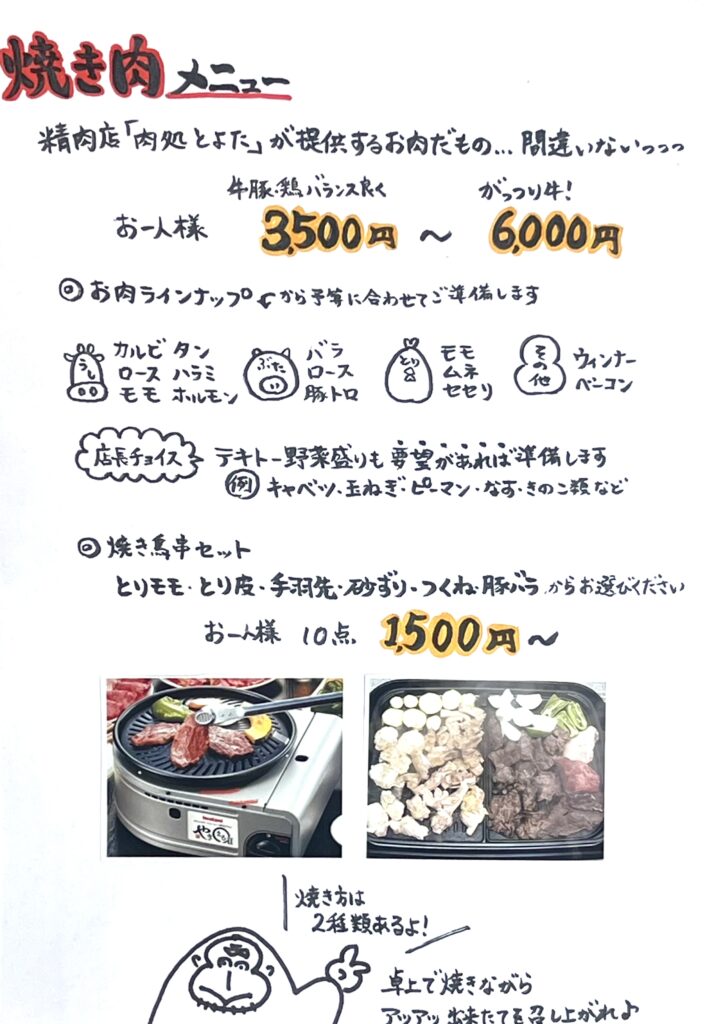 焼き肉メニュー
精肉店「肉処とよた」が提供するお肉だもの…間違いないっっっ
牛豚・鶏バランス良く
がっつり牛!
お一人様 3,500円 〜 6,000円
◎お肉ラインナップ から予算に合わせてご準備します
うし
カルビ タン
ロース ハラミ
モモ ホルモン
ぶたい
バラ
ロース
豚トロ
とり
モモ
ムネ
セセリ
その他
ウィンナー
ベーコン
店長チョイス テキトー野菜盛りも要望があれば準備します
例 キャベツ、玉ねぎ・ピーマン・なす・きのこ類など
◎焼き鳥串セット
とりモモ・とり皮・手羽先・砂ずり・つくね・豚バラ からお選びください
お一人様 10点 1,500円〜
Iwatani
焼き方は
2種類あるよ!
卓上で焼きながら
アツアツ出来たてを召し上がれよ